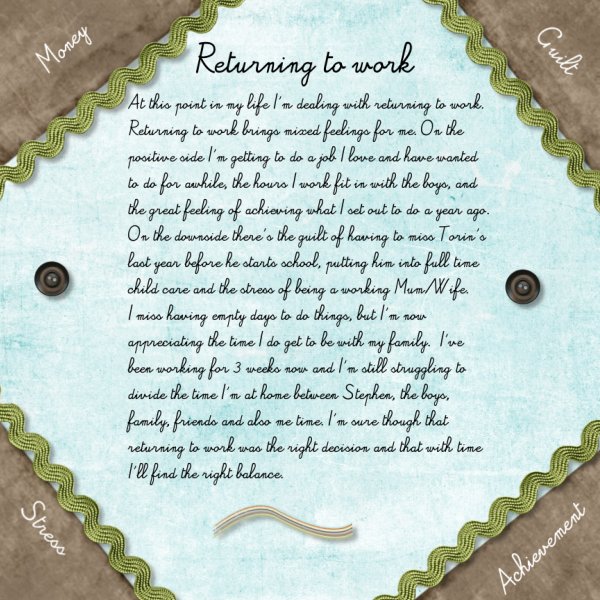 Money
Guilt
Returning to work
At this point in my life I'm dealing with returning to work.
Returning to work brings mixed feelings for me. On the
positive side I'm getting to do a job I love and have wanted
to do for awhile, the hours I work fit in with the boys, and
the great feeling of achieving what I set out to do a year ago.
On the downside there's the guilt of having to miss Torin's
last year before he starts school, putting him into full time
child care and the stress of being a working Mum/Wife.
I miss having empty days to do things, but I'm now
appreciating the time I do get to be with my family. I've
been working for 3 weeks now and I'm still struggling to
divide the time I'm at home between Stephen, the boys,
family, friends and also me time. I'm sure though that
returning to work was the right decision and that with time
I'll find the right balance.
Stress
Achievement